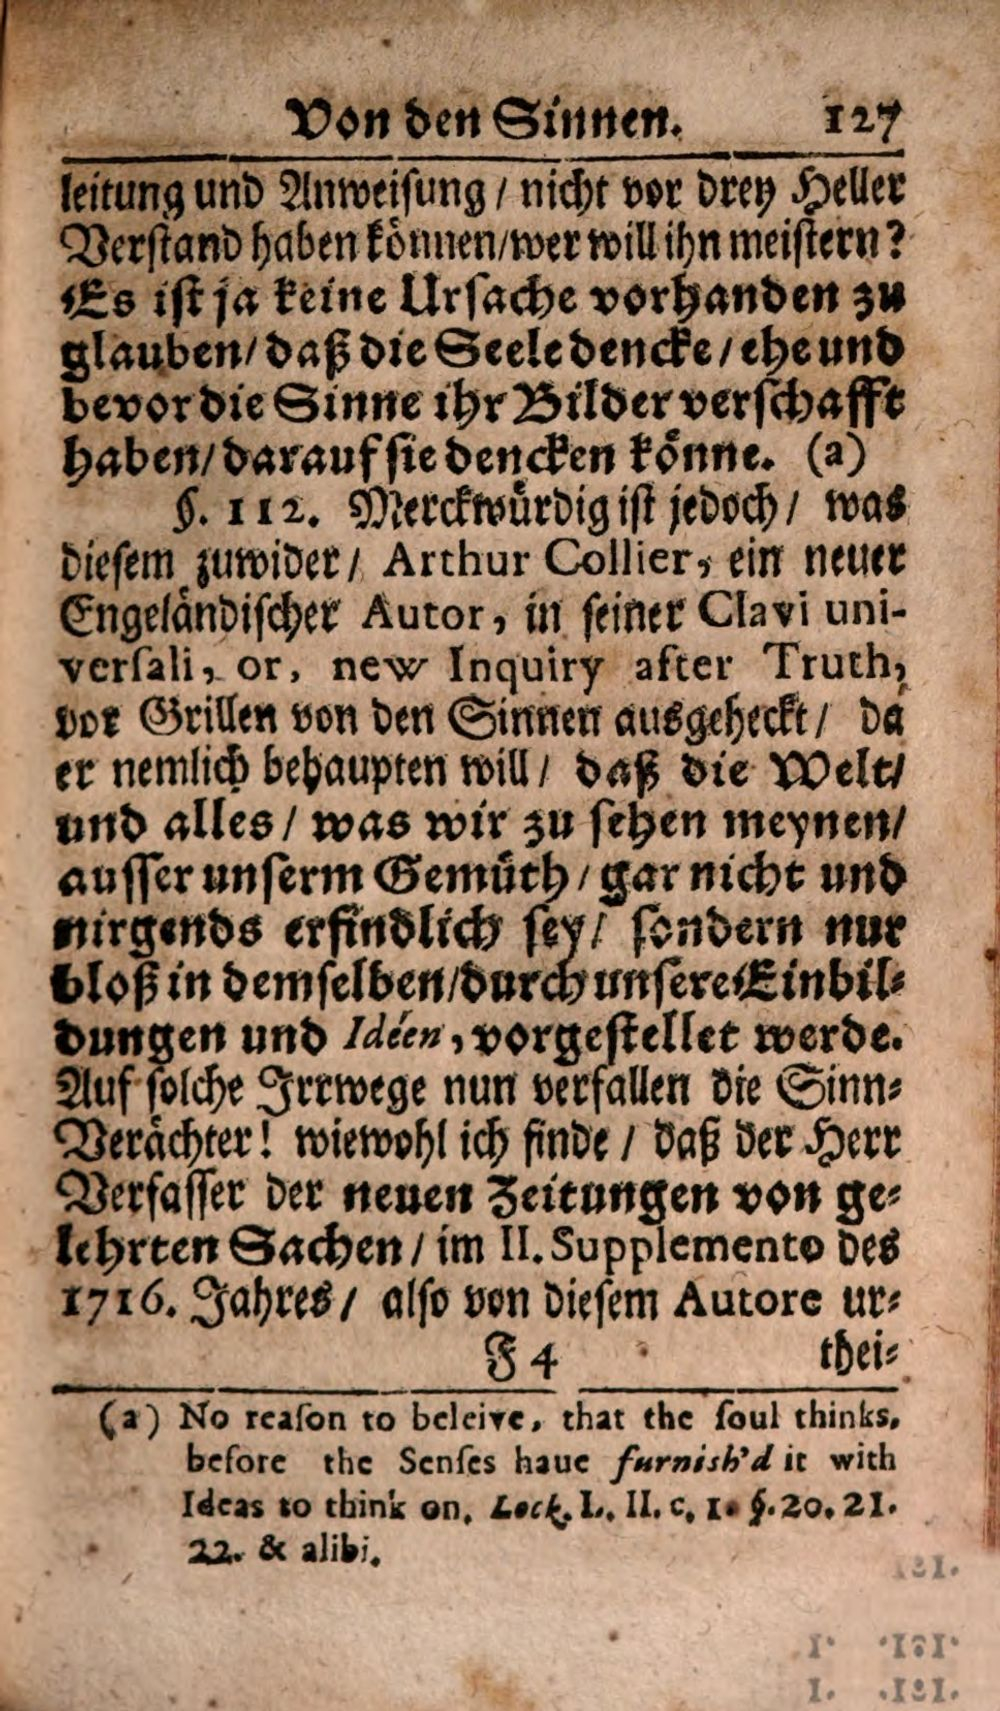 Von den Sinnen. 127
leitung und Anweisung / nicht vor drey Heller
Verstand haben können/wer will ihn meistern?
Es ist ja keine Ursache vorhanden zu
glauben/ daß die Seele dencke / ehe und
bevor die Sinne ihr Bilder verschafft
haben/ darauf sie dencken könne. (a)
§. 112. Merckwürdig ist jedoch / was
diesem zuwider / Arthur Collier, ein neuer
Engeländischer Autor, in seiner Clavi uni-
versali, or, new Inquiry after Truth,
vor Grillen von den Sinnen ausgeheckt / da
er nemlich behaupten will / daß die Welt/
und alles / was wir zu sehen meynen/
ausser unserm Gemüth / gar nicht und
nirgends erfindlich sey / sondern nur
bloß in demselben/durch unsere Einbil-
dungen und Idéen, vorgestellet werde.
Auf solche Irrwege nun verfallen die Sinn-
Verächter! wiewohl ich finde / daß der Herr
Verfasser der neuen Zeitungen von ge-
lehrten Sachen / im II. Supplemento des
1716. Jahres / also von diesem Autore ur-
J 4 thei-
(a) No reason to beleive, that the soul thinks,
before the Senses haue furnish'd it with
Ideas to think on. Lock. L. II. c. 1. §. 20. 21.
22. & alibi.